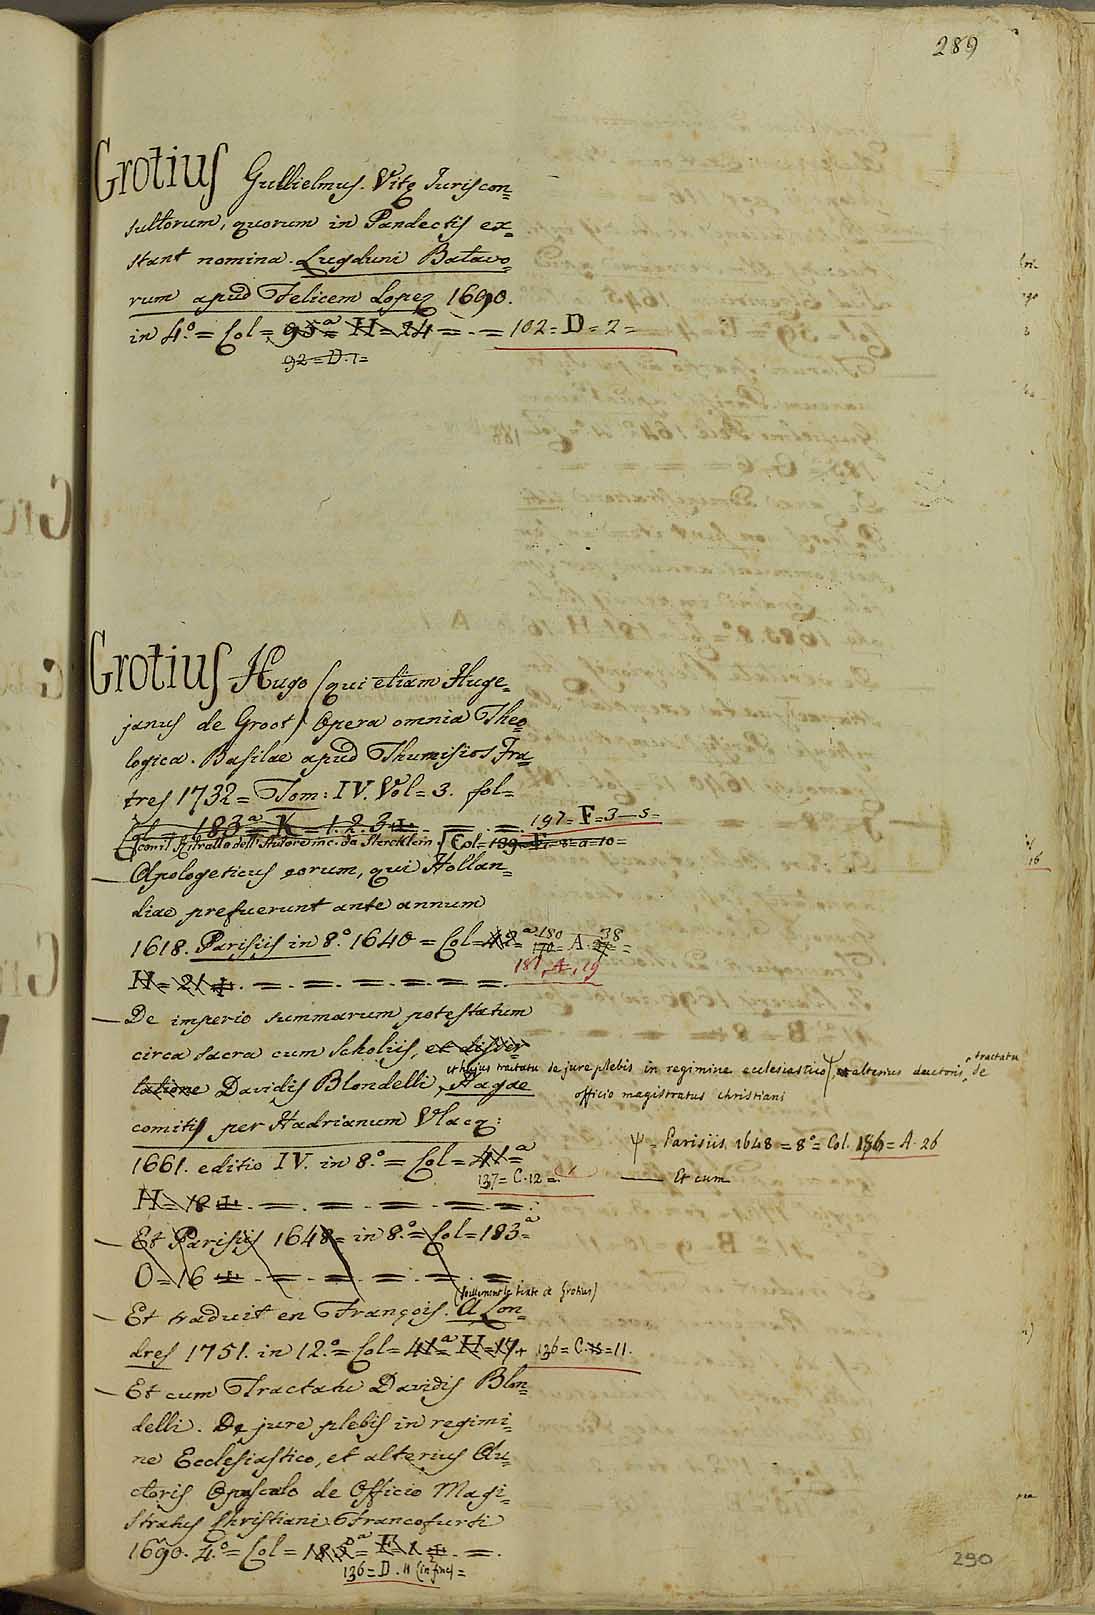 289
Grotius Gullielmus. Vitę Juriscon=
sultorum, quorum in Pandectis ex=
stant nomina. Lugduni Batavo=
rum apud Felicem Lopez 1690.
in 4.° = Col = 95ª = H = 24 = . = 102 = D = 2 =
92 = D. 7 =
Grotius Hugo (qui etiam Huge=
janus de Groot) Opera omnia Theo=
logica. Basilae apud Thurnisios Fra=
tres 1732 = Tom: IV. Vol = 3. fol =
Col = 183ª = K = 1. 2. 3 ‡ = . = . 197 = F = 3 — 5 =
(con il Ritratto dell'Autore inc. da Stercklein. Col = 199 = F = 8 = a = 10 =
— Apologeticus eorum, qui Hollan=
diae prefuerunt ante annum
1618. Parisiis in 8.° 1640 = Col = 42ª = 180 = A. 38 =
181, A, 19
H = 21 ‡. = . = . = . = . = . = .
— De imperio summarum potestatum
circa sacra cum Scholiis, et disser=
et hujus tractatu de jure plebis in regimine ecclesiastico, et alterius auctoris, tractatu de
tatione Davidis Blondelli, Hagae
officio magistratus christiani
comitis per Hadrianum Vlacq:
ψ = Parisiis 1648 = 8° = Col. 186 = A. 26
1661. editio IV. in 8.° = Col = 41ª =
137 = C. 12 =
— Et cum
H = 18 ‡. = . = . = . = . = . = .
— Et Parisiis 1648 = in 8.° = Col = 183ª =
O = 16 ‡ = . = . = . = . = . =
— Et traduit en François. A Lon=
dres 1751. in 12.° = Col = 41ª = H = 17 + 136 = C. = 11.
— Et cum Tractatu Davidis Blon=
delli. De jure plebis in regimi=
ne Ecclesiastico, et alterius Au=
ctoris Opusculo de Officio Magi=
stratus Christiani Francofurti
1690. 4.° = Col = 182ª = F = 1 ‡. = .
136 = D. 11 (in fine) =
290